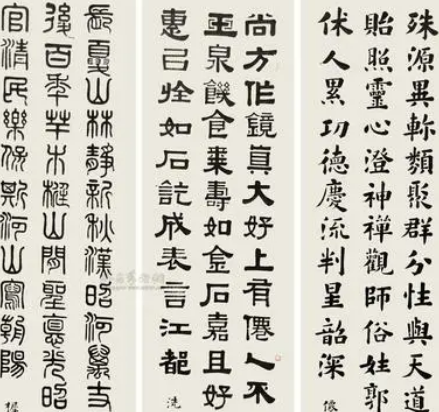 殊源異軫類聚群分性與天道
貽照靈心澄神禪觀師俗姓郭
俅人累功德慶流判星韶深
尚方作鏡真大好上有僊人不
玉泉饑食棗壽如金石嘉且好
己如石託成表言江都
洗
長夏山林靜新秋漢昭河
後百年木山閒聖光昭
官清民樂河山鳳朝陽